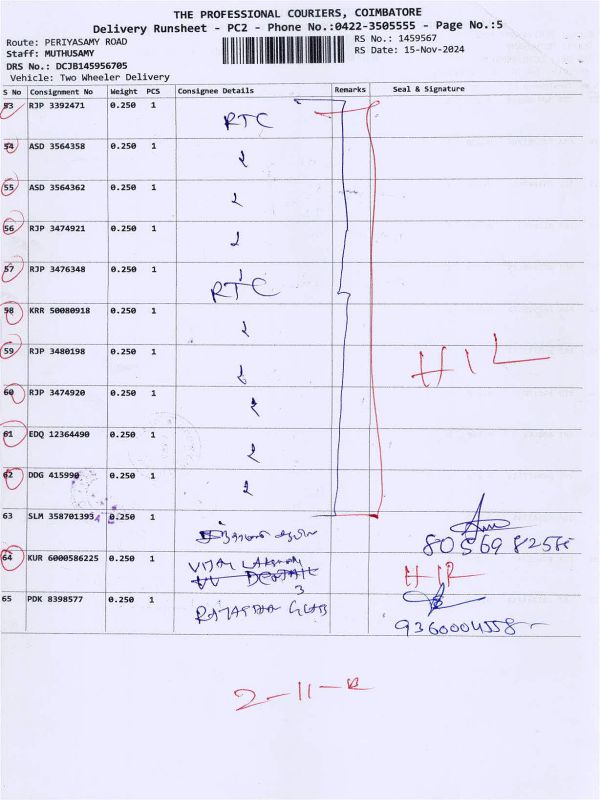 THE PROFESSIONAL COURIERS, COIMBATORE
Delivery Runsheet - PC2 - Phone No.:0422-3505555 - Page No.:5
Route: PERIYASAMY ROAD
RS No.: 1459567
Staff: MUTHUSAMY
RS Date: 15-Nov-2024
DRS No.: DCJB145956705
Vehicle: Two Wheeler Delivery
S No Consignment No Weight PCS Consignee Details Remarks Seal & Signature
53 RJP 3392471 0.250 1 RTC
54 ASD 3564358 0.250 1
55 ASD 3564362 0.250 1
56 RJP 3474921 0.250 1
57 RJP 3476348 0.250 1 RTC
58 KRR 50080918 0.250 1
59 RJP 3480198 0.250 1
60 RJP 3474920 0.250 1
61 EDQ 12364490 0.250 1
62 DDG 415990 0.250 1
63 SLM 358701393 0.250 1
64 KUR 6000586225 0.250 1
65 PDK 8398577 0.250 1
9360004558